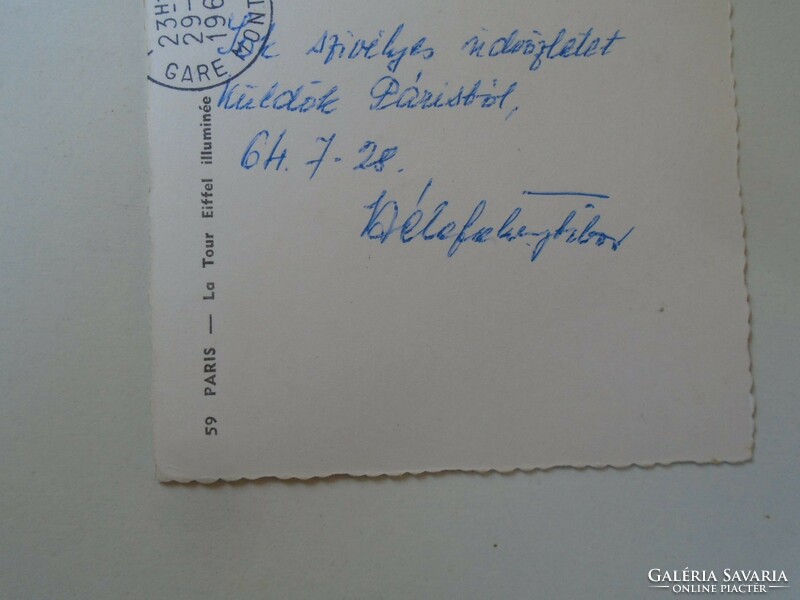 23H
29-
196
GARE MONT
Sok szivélyes üdvözletet
Küldök Párisból,
64. 7-28.
59 PARIS — La Tour Eiffel illuminée
GALÉRIA SAVARIA
ONLINE PIACTÉR